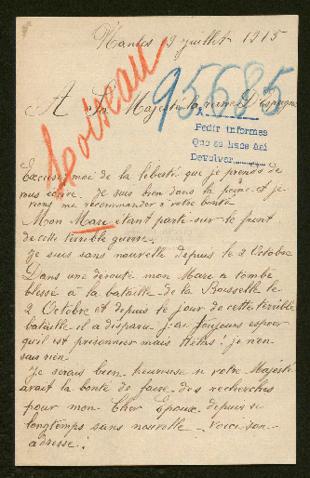 Nantes 19 juillet 1915
Loiseau
95685
A Sa Majesté la reine d'Espagne
Pedir informes
Que se hace así
Devolver
Excusez moi de la liberté que je prends de
vous écrire. Je suis bien dans la peine et je
viens me recommander à votre bonté
Mon Mari étant parti sur le front
de cette terrible guerre.
Je suis sans nouvelle depuis le 2 Octobre
Dans une déroute mon Mari a tombé
blessé à la bataille de la Boisselle le
2 Octobre et depuis le jour de cette terrible
bataille il a disparu j'ai toujours espoir
qu'il est prisonnier mais Hélas! je n'en
sais rien.
Je serais bien heureuse si votre Majesté
avait la bonté de faire des recherches
pour mon Cher Epoux depuis si
longtemps sans nouvelle. Voici son
adresse: